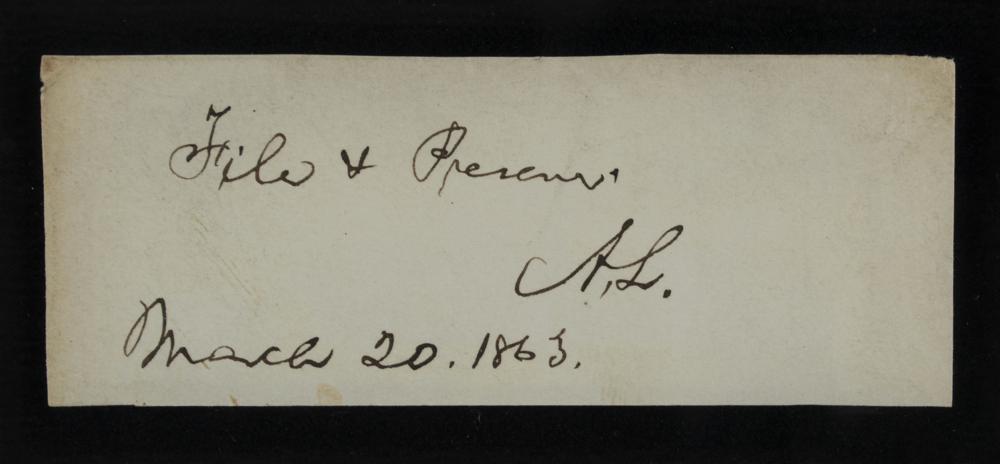 File & Preserve.
A.L.
March 20. 1863.